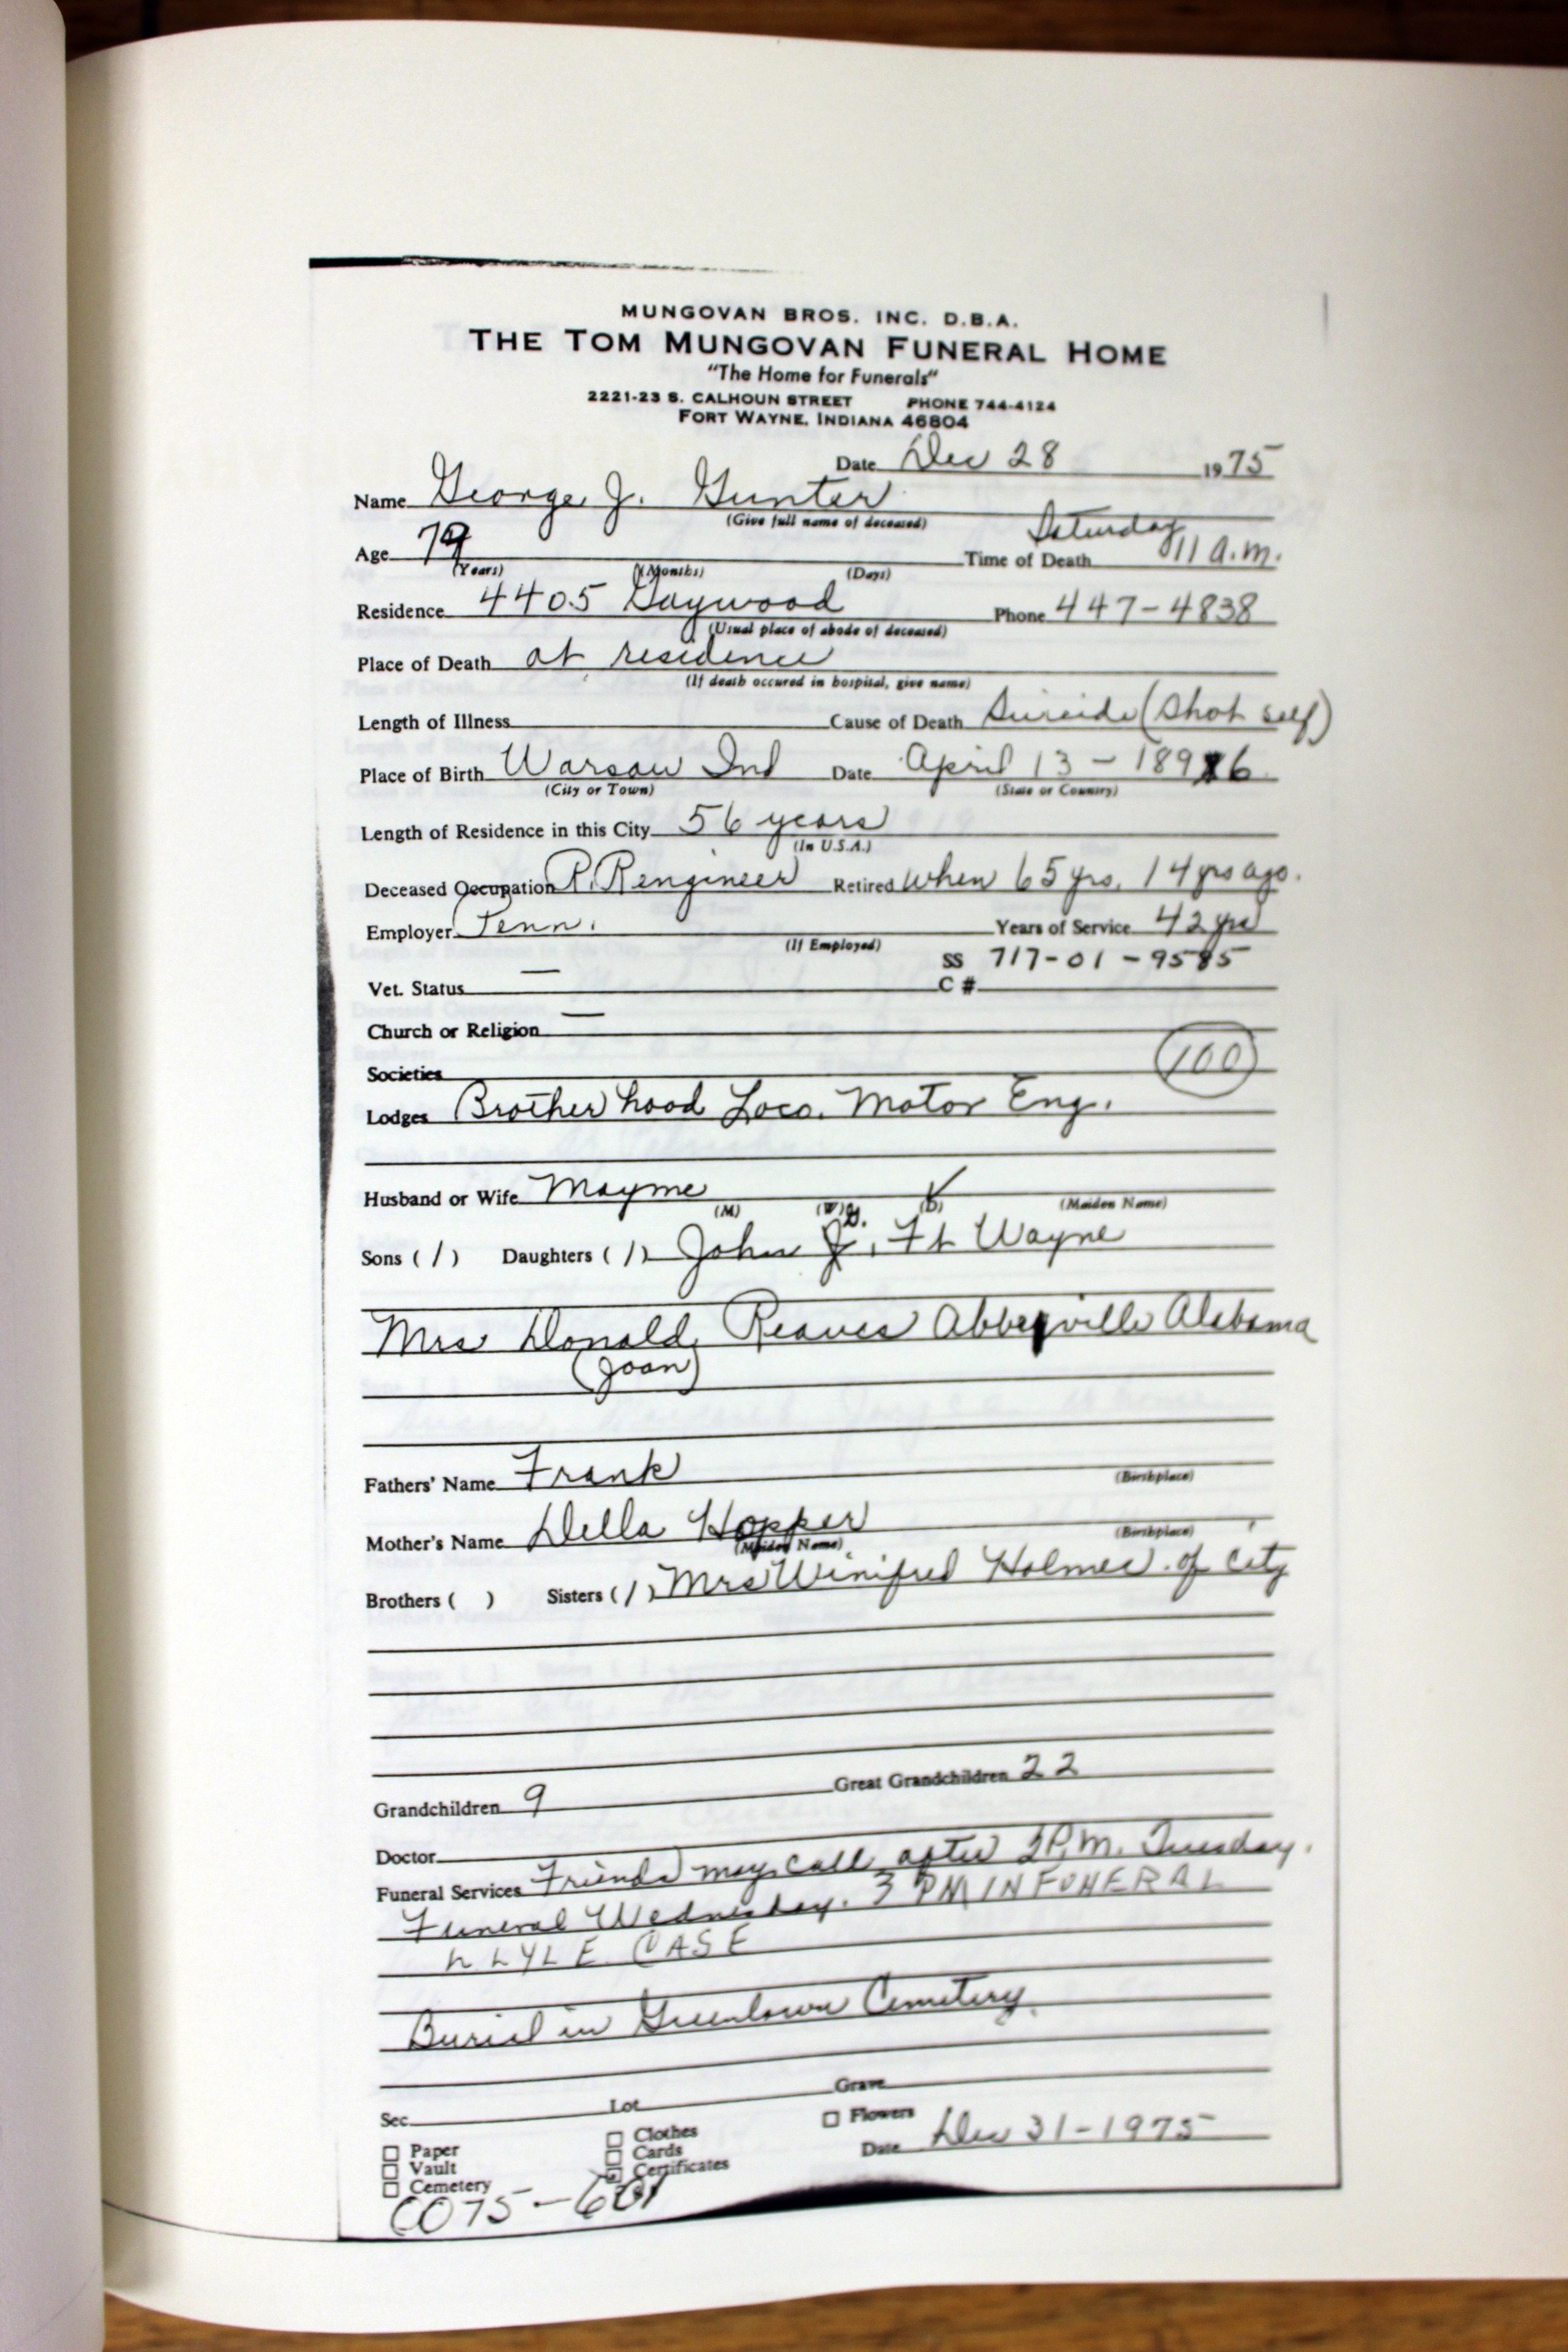 MUNGOVAN BROS. INC. D.B.A.
THE TOM MUNGOVAN FUNERAL HOME
"The Home for Funerals"
2221-23 S. CALHOUN STREET PHONE 744-4124
FORT WAYNE, INDIANA 46804
Date Dec 28 1975
Name George J. Gunter
(Give full name of deceased)
Saturday
Age 79 Time of Death 11 a.m.
(Years) (Months) (Days)
Residence 4405 Gaywood Phone 447-4838
(Usual place of abode of deceased)
Place of Death at residence
(If death occured in hospital, give name)
Length of Illness Cause of Death Suicide (Shot self)
Place of Birth Warsaw Ind Date April 13-1896
(City or Town) (State or Country)
Length of Residence in this City 56 years
(In U.S.A.)
Deceased Occupation R.R engineer Retired When 65 yrs, 14 yrs ago.
Employer Penn. Years of Service 42 yrs
(If Employed)
SS 717-01-9585
Vet. Status — C#
Church or Religion —
Societies 100
Lodges Brotherhood Loco. Motor Eng.
Husband or Wife Mayme ✓
(M) (W) (D) (Maiden Name)
Sons (/) Daughters (/) John G., Ft Wayne
Mrs Donald Reaves Abbeville Alabama
(Joan)
Fathers' Name Frank
(Birthplace)
Mother's Name Della Hopper
(Maiden Name) (Birthplace)
Brothers ( ) Sisters (/) Mrs Winifred Holmes of city
Grandchildren 9 Great Grandchildren 22
Doctor
Funeral Services Friends may call after 2 P.M. Tuesday.
Funeral Wednesday. 3 PM IN FUNERAL
LYLE CASE
Burial in Greenlawn Cemetery.
Sec Lot Grave
Paper Clothes Flowers
Vault Cards Date Dec 31-1975
Cemetery Certificates
CO75-601